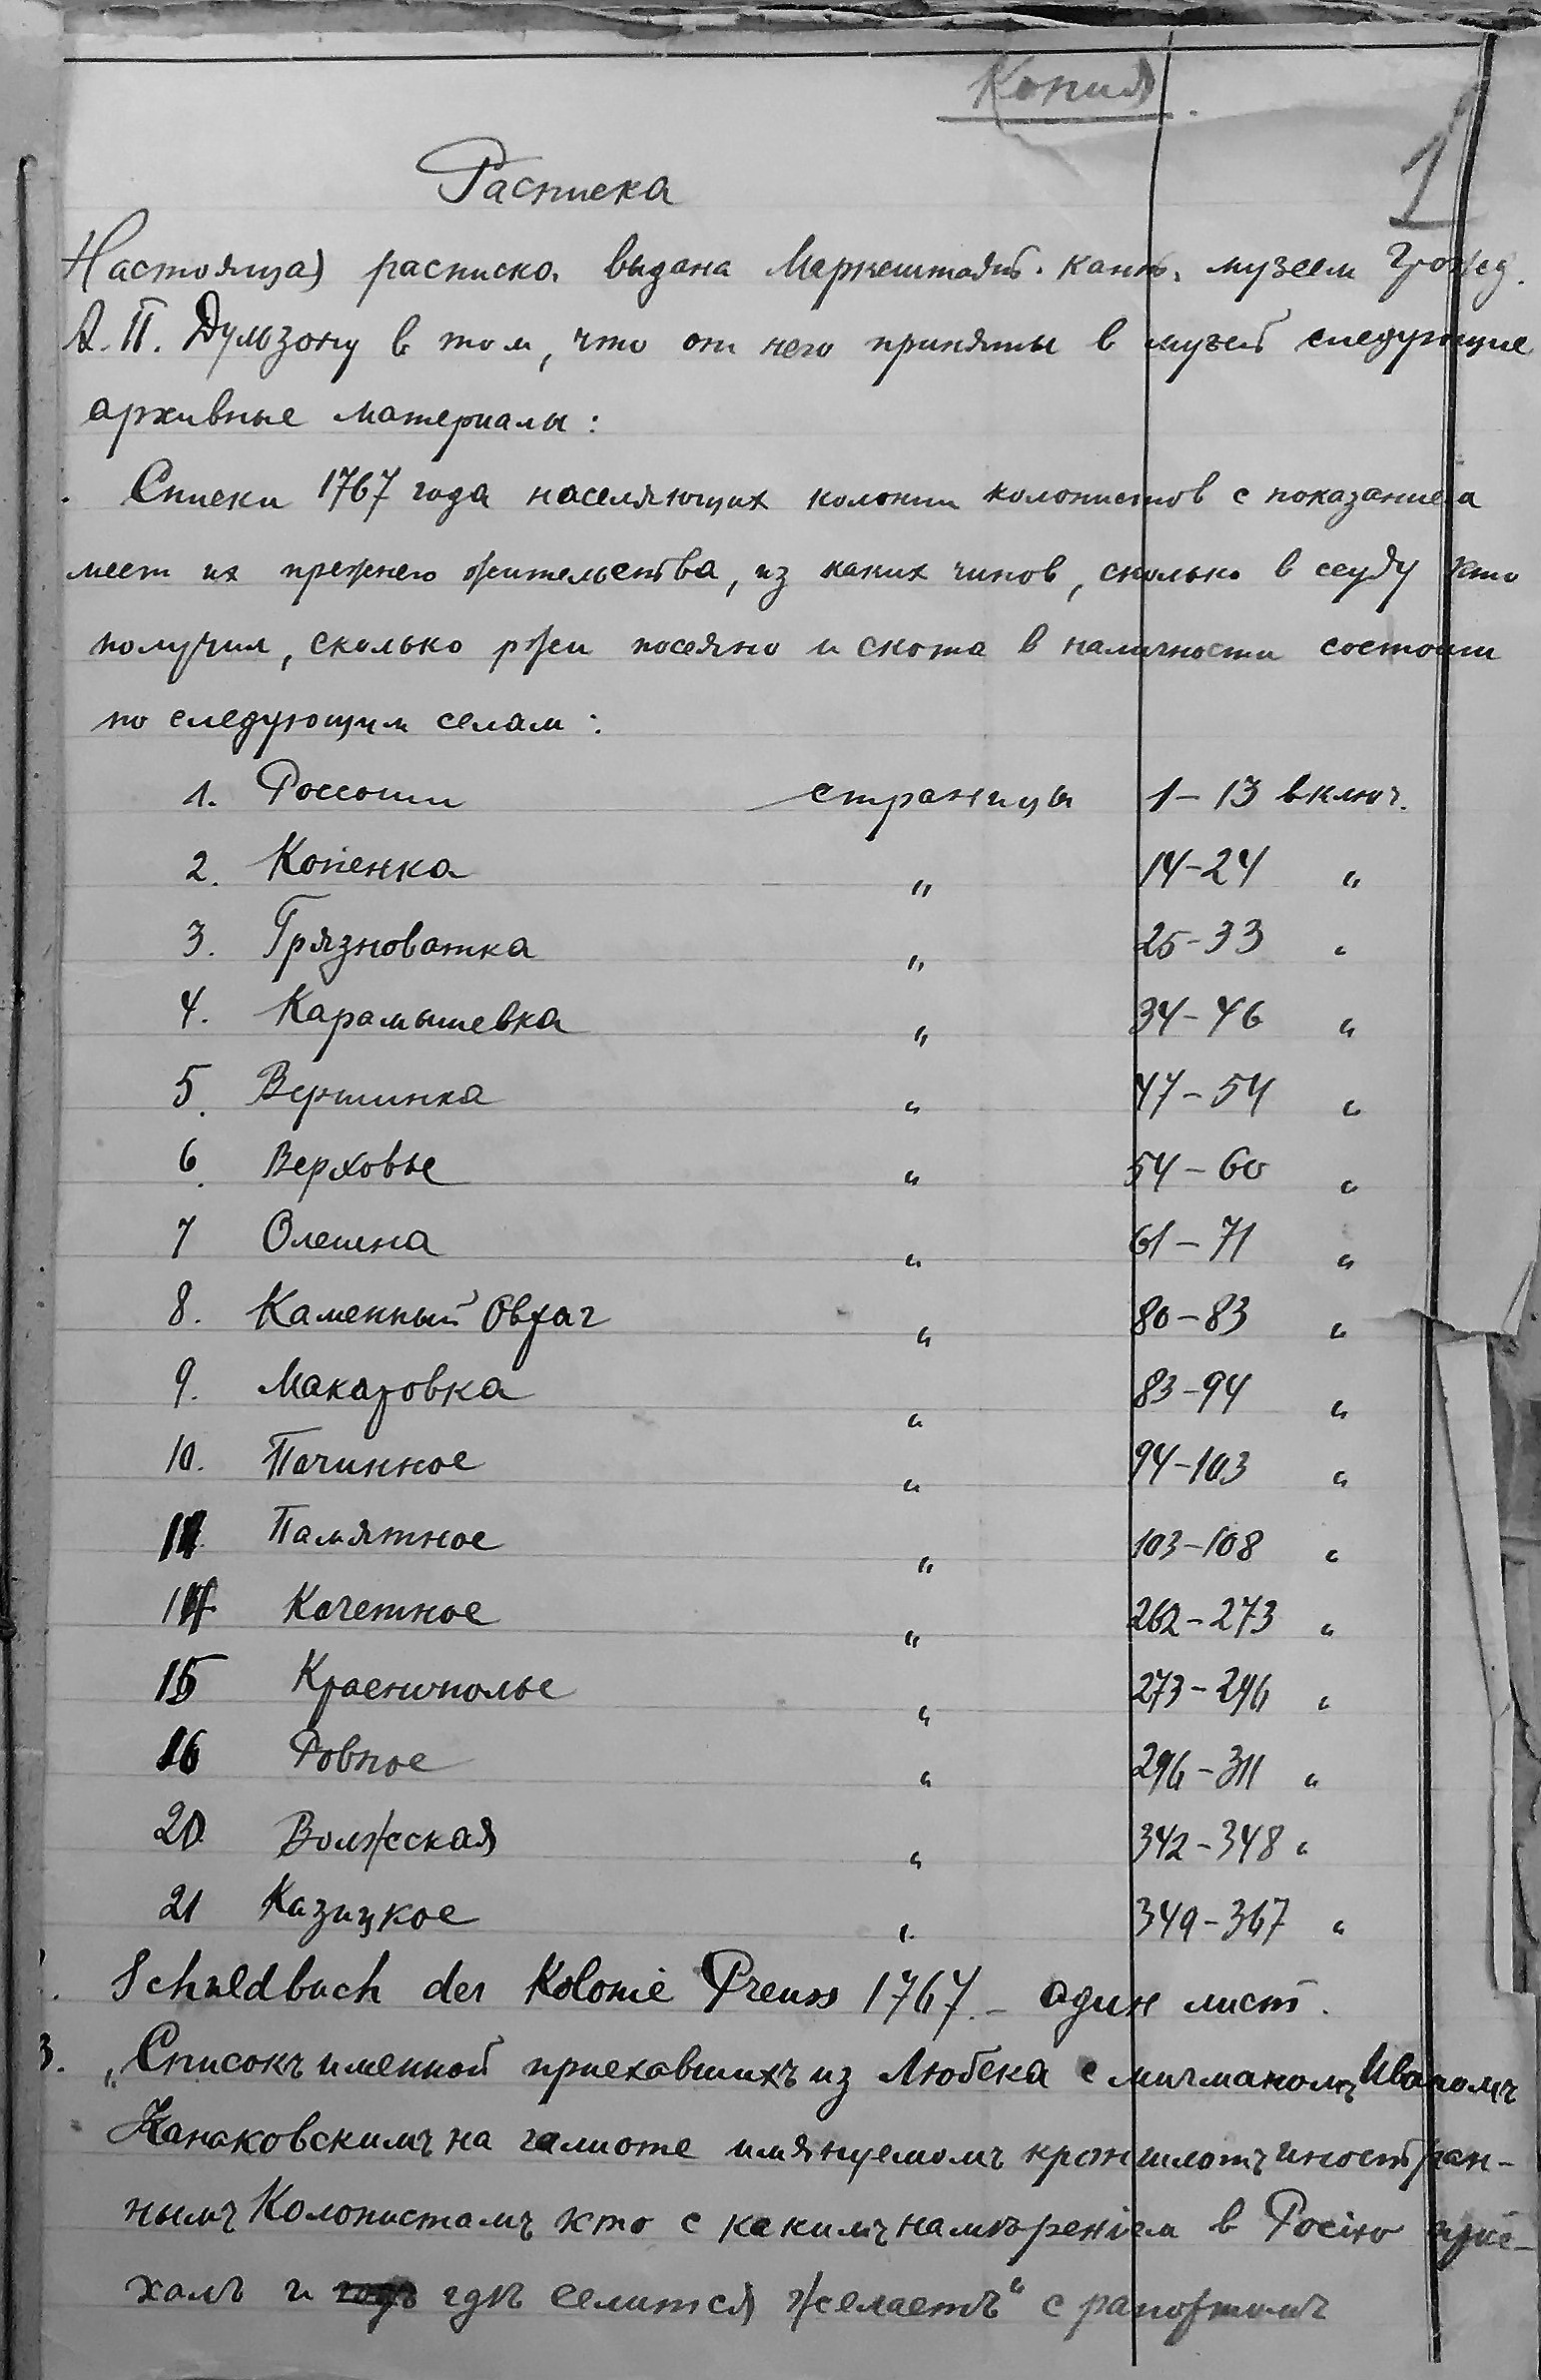 Копия.
1
Расписка
Настоящая расписка выдана Марксштадт. кант. музеем гражд.
А. П. Дульзону в том, что от него приняты в музей следующие
архивные материалы:
. Списки 1767 года населяющих колонии колонистов с показанием
мест их прежнего жительства, из каких чинов, сколько в ссуду кто
получил, сколько ржи посеяно и скота в наличности состоит
по следующим селам:
1. Россоши страницы 1-13 включ.
2. Копенка " 14-24 "
3. Грязноватка " 25-33 "
4. Карамышевка " 34-46 "
5. Вершинка " 47-54 "
6. Верховье " 54-60 "
7 Олешна " 61-71 "
8. Каменный Овраг " 80-83 "
9. Макаровка " 83-94 "
10. Починное " 94-103 "
11. Памятное " 103-108 "
14 Кочетное " 262-273 "
15 Краснополье " 273-296 "
16 Ровное " 296-311 "
20 Волжская " 342-348 "
21 Казицкое " 349-367 "
. Schuldbuch der Kolonie Preuss 1767. - один лист.
3. „Списокъ именной приехавшихъ из Любека с мичманомъ Иваномъ
Канаковскимъ на галиоте имянуемомъ кроншлотъ иностран-
нымъ Колонистамъ кто с какимъ намѣреніем в Росiю прiе-
халъ и где селится желаетъ" с рапортомъ